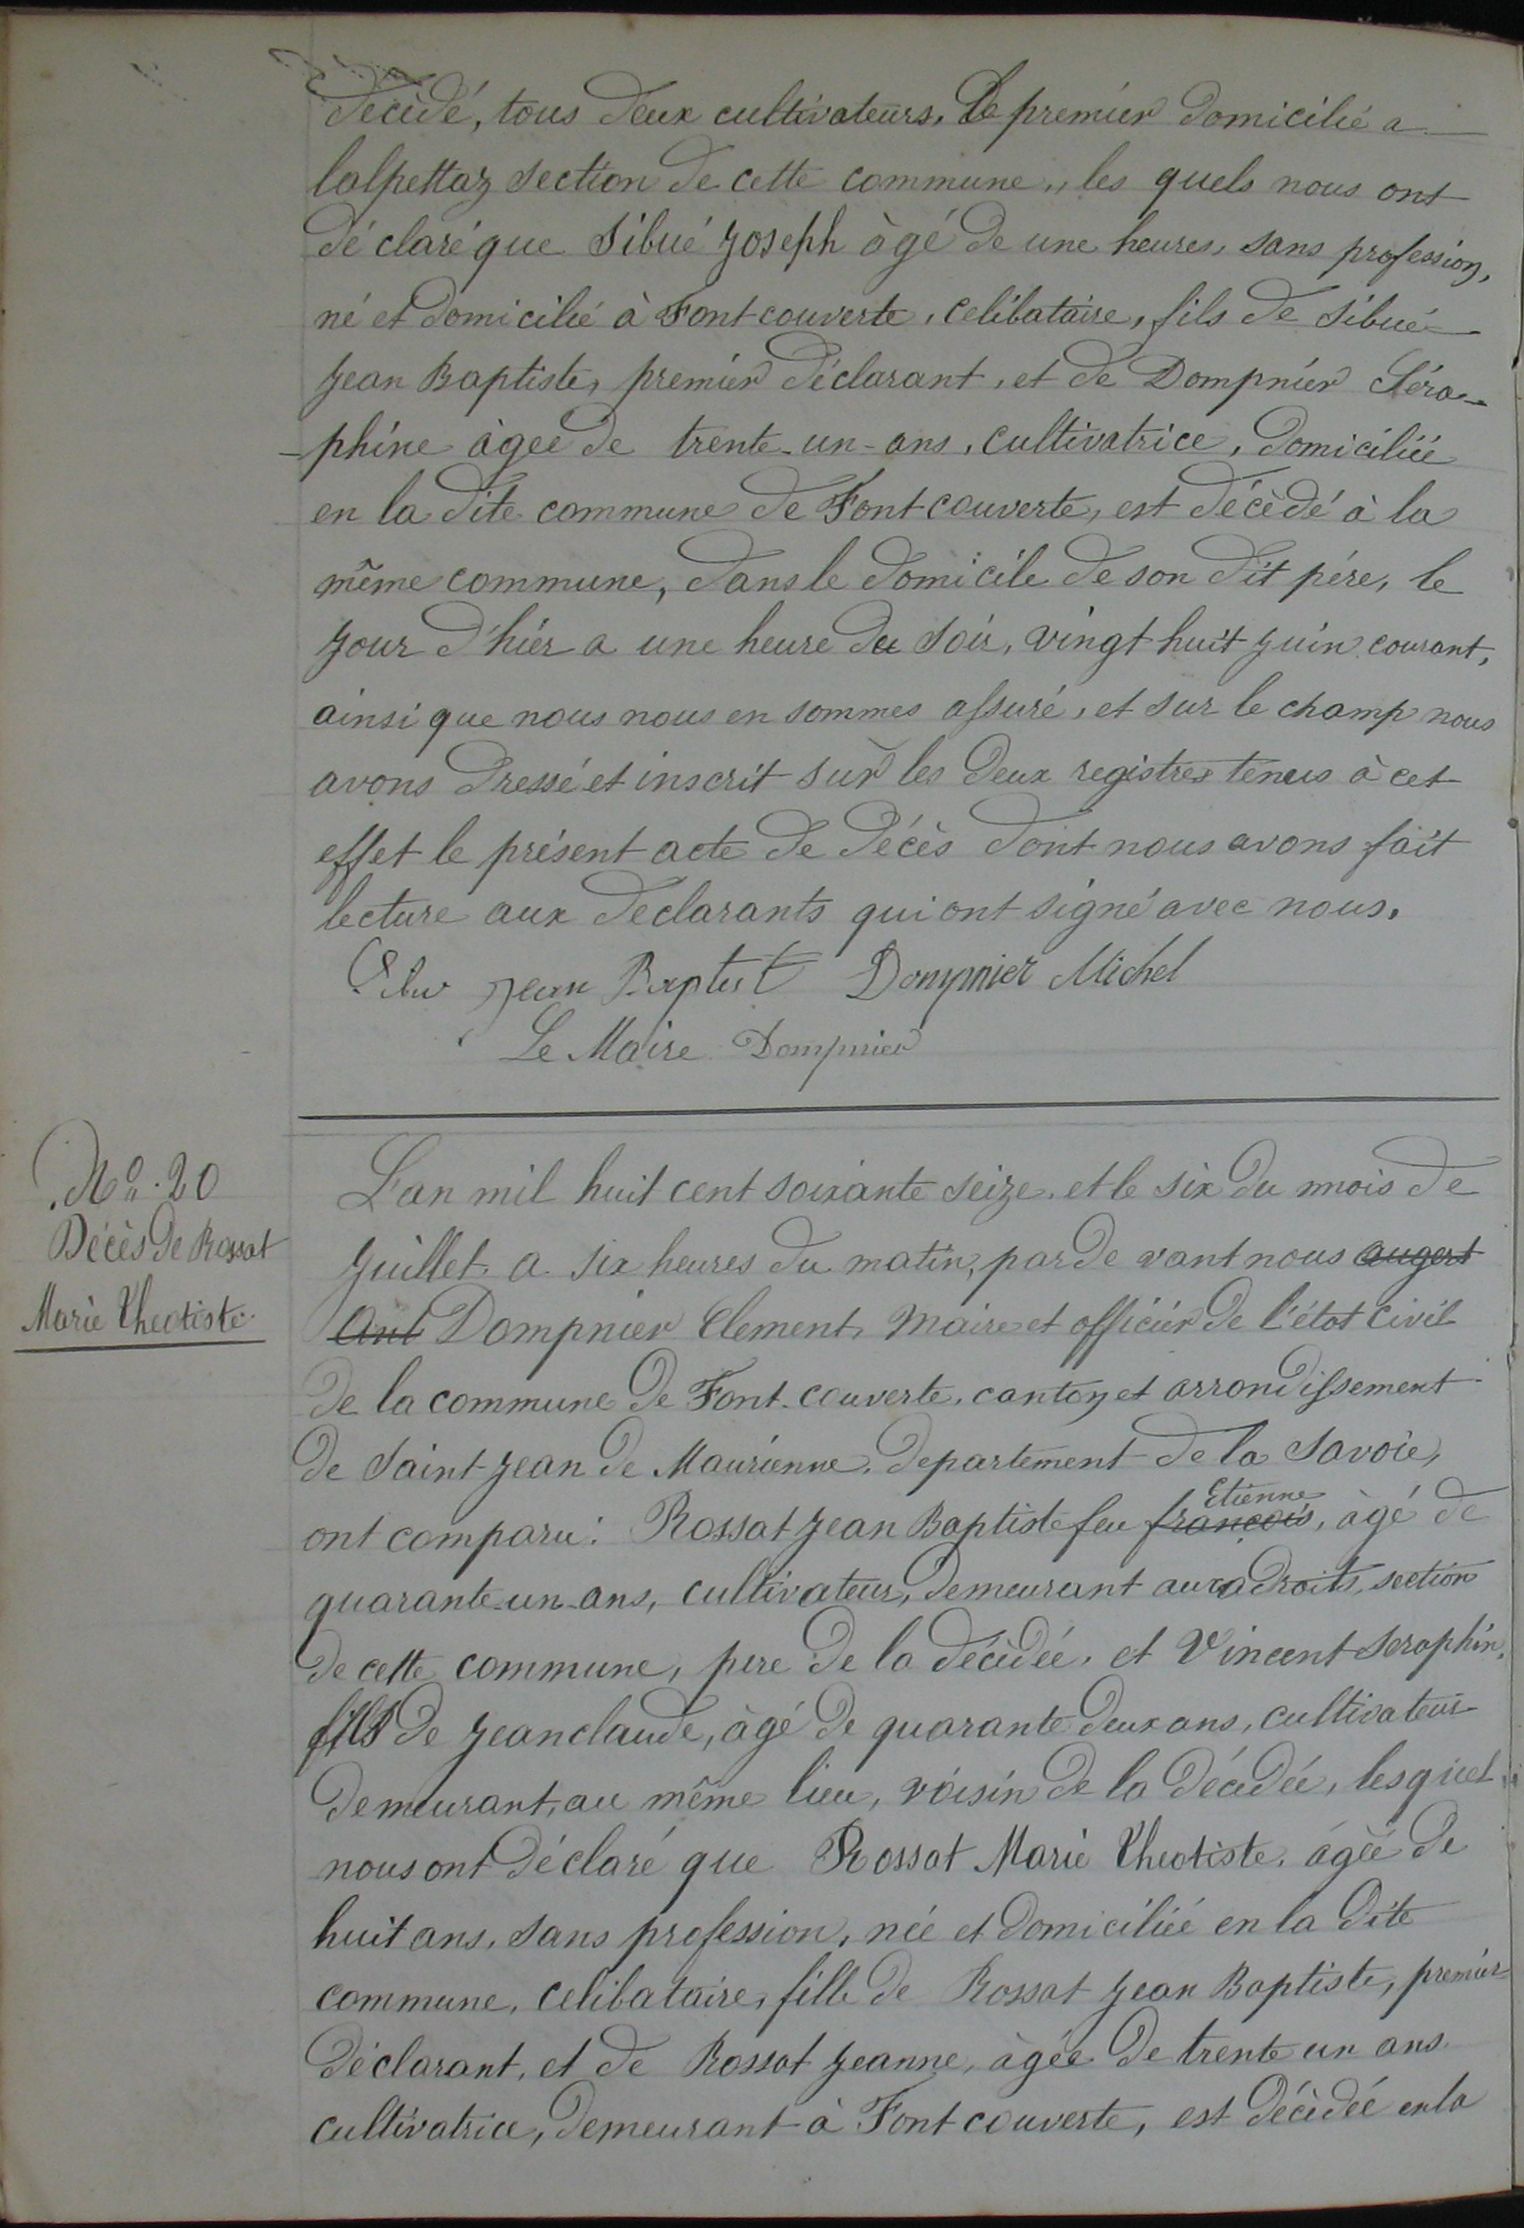 décèdé, tous deux cultivateurs, Le premier domicilié a
lalpettaz section de cette commune,, les quels nous ont
dé claré que Sibué Joseph àgé de une heures, sans profession,
né et domicilié à Fontcouverte, celibataire, fils de Sibué
Jean Baptiste, premier déclarant, et de Dompnier Séra-
-phine àgée de trente-un-ans, cultivatrice, domiciliée
en la dite commune de Fontcouverte, est décèdé à la
même commune, dans le domicile de son dit pére, le
jour d'hier a une heure du soir, vingt huit juin courant,
ainsi que nous nous en sommes assuré, et sur le champ nous
avons dressé et inscrit sur les deux registres tenus à cet
effet le présent acte de décès dont nous avons fait
lecture aux declarants qui ont signé avec nous.
Sibu Jean Baptist Dompnier Michel
Le Maire Dompnier
Nº. 20
Décès de Rossat
Marie Theotiste
L'an mil huit cent soixante seize et le six du mois de
Juillet a six heures du matin, par de vant nous augert
Ant Dompnier Clement, Maire et officier de l'état civil
de la commune de Font-couverte, canton et arrondissement
de Saint-Jean de Maurienne, departement de la Savoie,
ont comparu: Rossat Jean Baptiste feu françois Etienne, àgé de
quarante-un-ans, cultivateur, demeurant aux adroits, section
de cette commune, pere de la décèdée, et Vincent Seraphin,
fils de Jeanclaude, àgé de quarante deux ans, cultivateur
demeurant, au même lieu, voisin de la décèdée, lesquel
nous ont déclaré que Rossat Marie Theotiste, àgée de
huit ans, sans profession, née et domiciliée en la dite
commune, celibataire, fille de Rossat Jean Baptiste, premier
déclarant, et de Rossat Jeanne, àgée de trente un ans
cultivatrice, demeurant à Fontcouverte, est décèdée en la